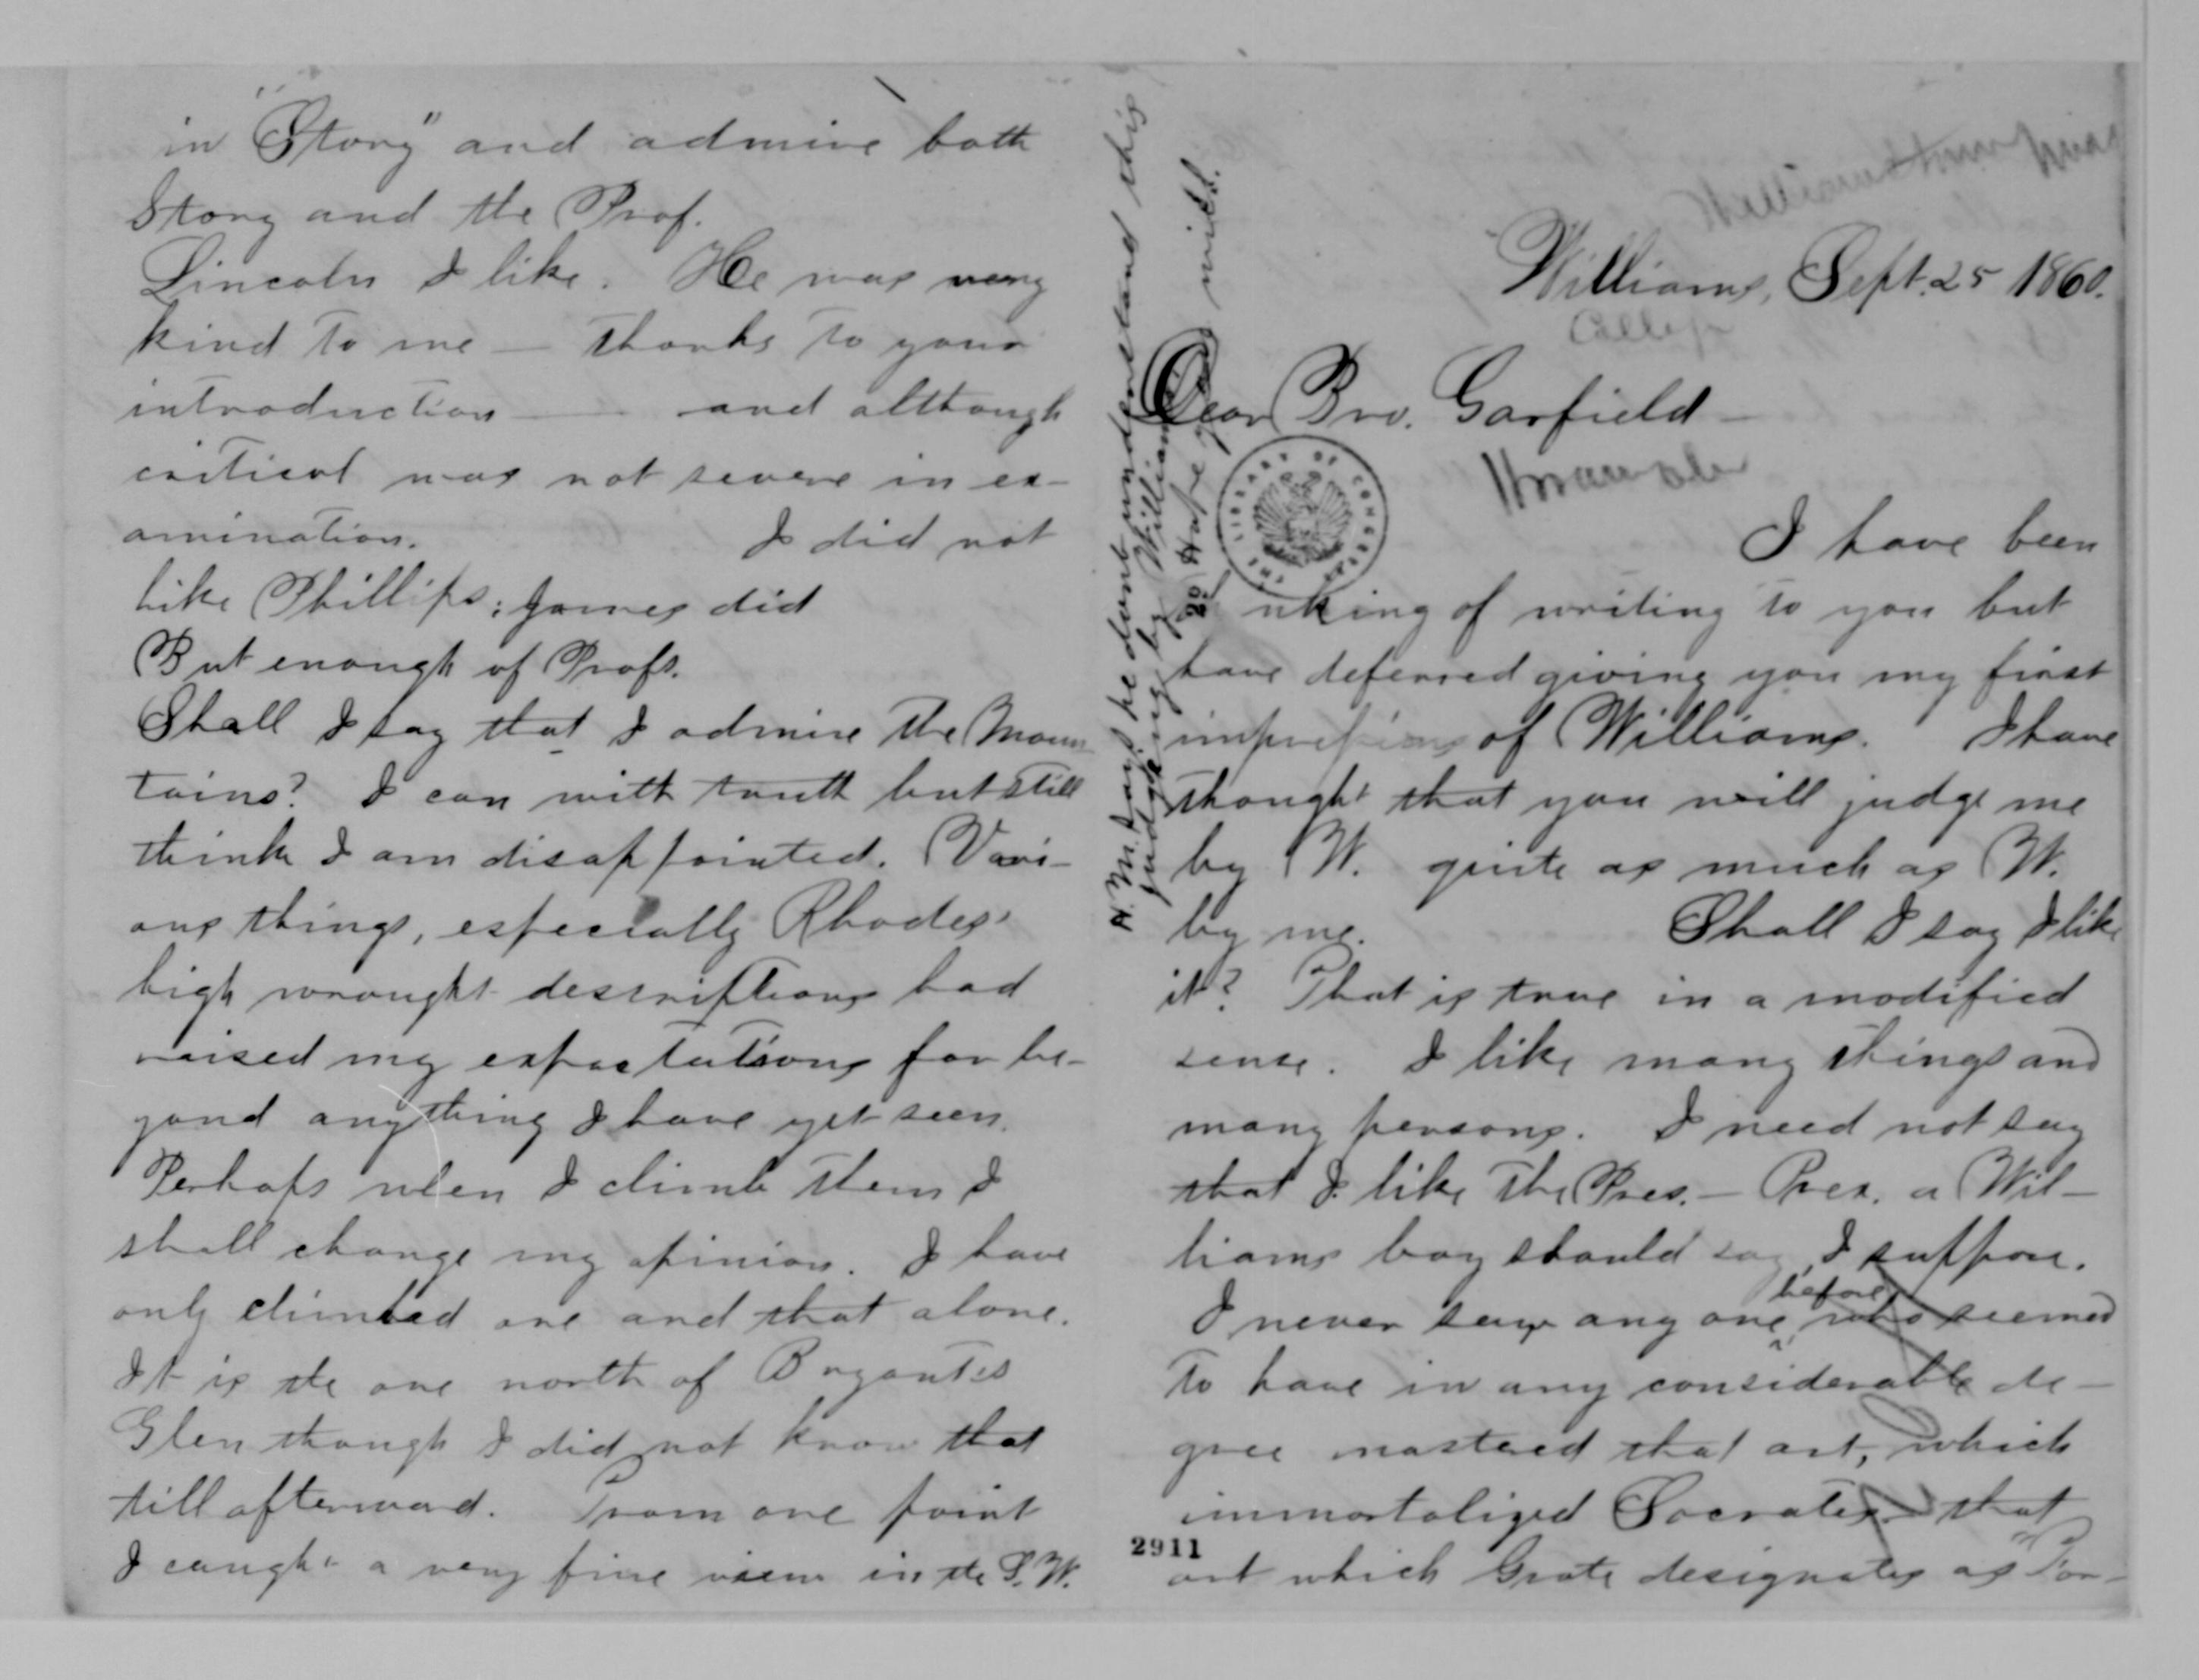 in "Story" and admire both
Story and the Prof.
Lincoln I like. He was very
kind to me — thanks to your
introduction — and although
critical was not severe in ex-
amination. I did not
like Phillips; James did
But enough of Profs.
Shall I say that I admire the Moun
tains? I can with truth but still
think I am disappointed. Vari-
ous things, especially Rhodes'
high wrought descriptions had
raised my expectations far be-
yond anything I have yet seen.
Perhaps when I climb them I
shall change my opinion. I have
only climbed one and that alone.
It is the one north of Bryant's
Glen though I did not know that
till afterward. From one point
I caught a very fine view in the S.W.
Williamstown Mass
Williams, Sept. 25 1860.
College
Dear Bro. Garfield —
I have been
nking of writing to you but
have deferred giving you my first
impressions of Williams. I have
thought that you will judge me
by W. quite as much as W.
by me. Shall I say I like
it? That is true in a modified
sense. I like many things and
many persons. I need not say
that I like the Pres. — Prex. a Wil-
liams boy should say, I suppose.
I never saw any one before who seemed
to have in any considerable de-
gree mastered that art, which
immortalized Socrates — that
art which Grote designates as
2911
THE LIBRARY OF CONGRESS
he don't understand this
judging by Williams
Hope you will.